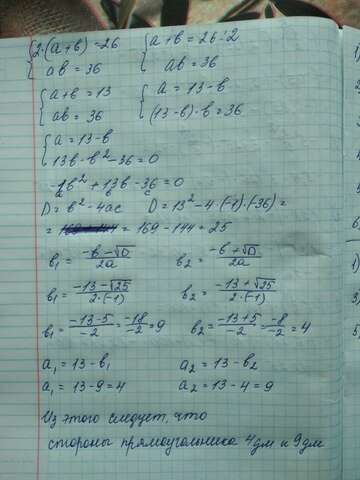 {2·(a+в)=26 {a+в=26:2
{ав=36 {ав=36
{a+в=13 {a=13-в
{ав=36 {(13-в)·в=36
{a=13-в
{13в-в²-36=0
-1в²+13в-36=0
a в c
D=в²-4ac D=13²-4·(-1)·(-36)=
= 169-144=25
в₁=(-в-√D)/2a в₂=(-в+√D)/2a
в₁=(-13-√25)/(2·(-1)) в₂=(-13+√25)/(2·(-1))
в₁=(-13-5)/(-2)=(-18)/(-2)=9 в₂=(-13+5)/(-2)=(-8)/(-2)=4
a₁=13-в₁ a₂=13-в₂
a₁=13-9=4 a₂=13-4=9
Из этого следует, что
стороны прямоугольника 4дм и 9дм